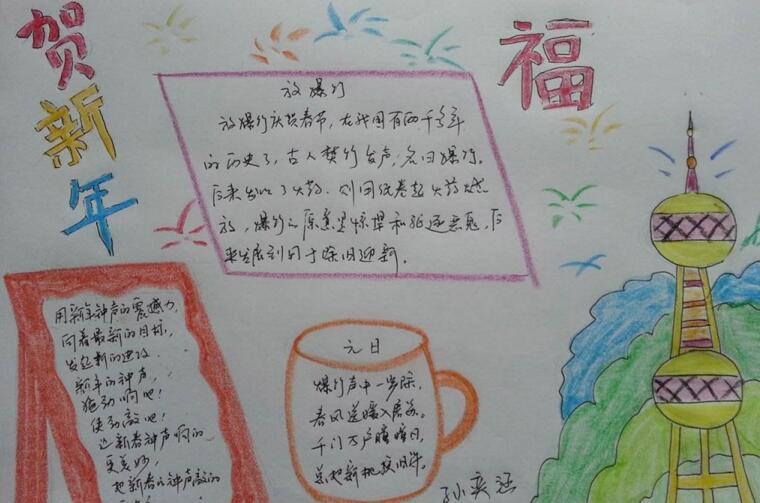 贺新年
福
放爆竹
放爆竹庆贺春节，在我国有两千多年
的历史了，古人焚竹发声，名曰爆竹。
后来发明了火药，则用纸卷起火药燃
放，爆竹之原意是惊惮和驱逐恶鬼，后
来发展到用于除旧迎新。
用新年钟声的震撼力，
向着最新的目标，
发起新的进攻
新年的钟声，
敲动啊吧！
使劲敲吧！
让新春钟声响的
更美妙，
把新春的钟声敲的
元日
爆竹声中一岁除，
春风送暖入屠苏。
千门万户曈曈日，
总把新桃换旧符。